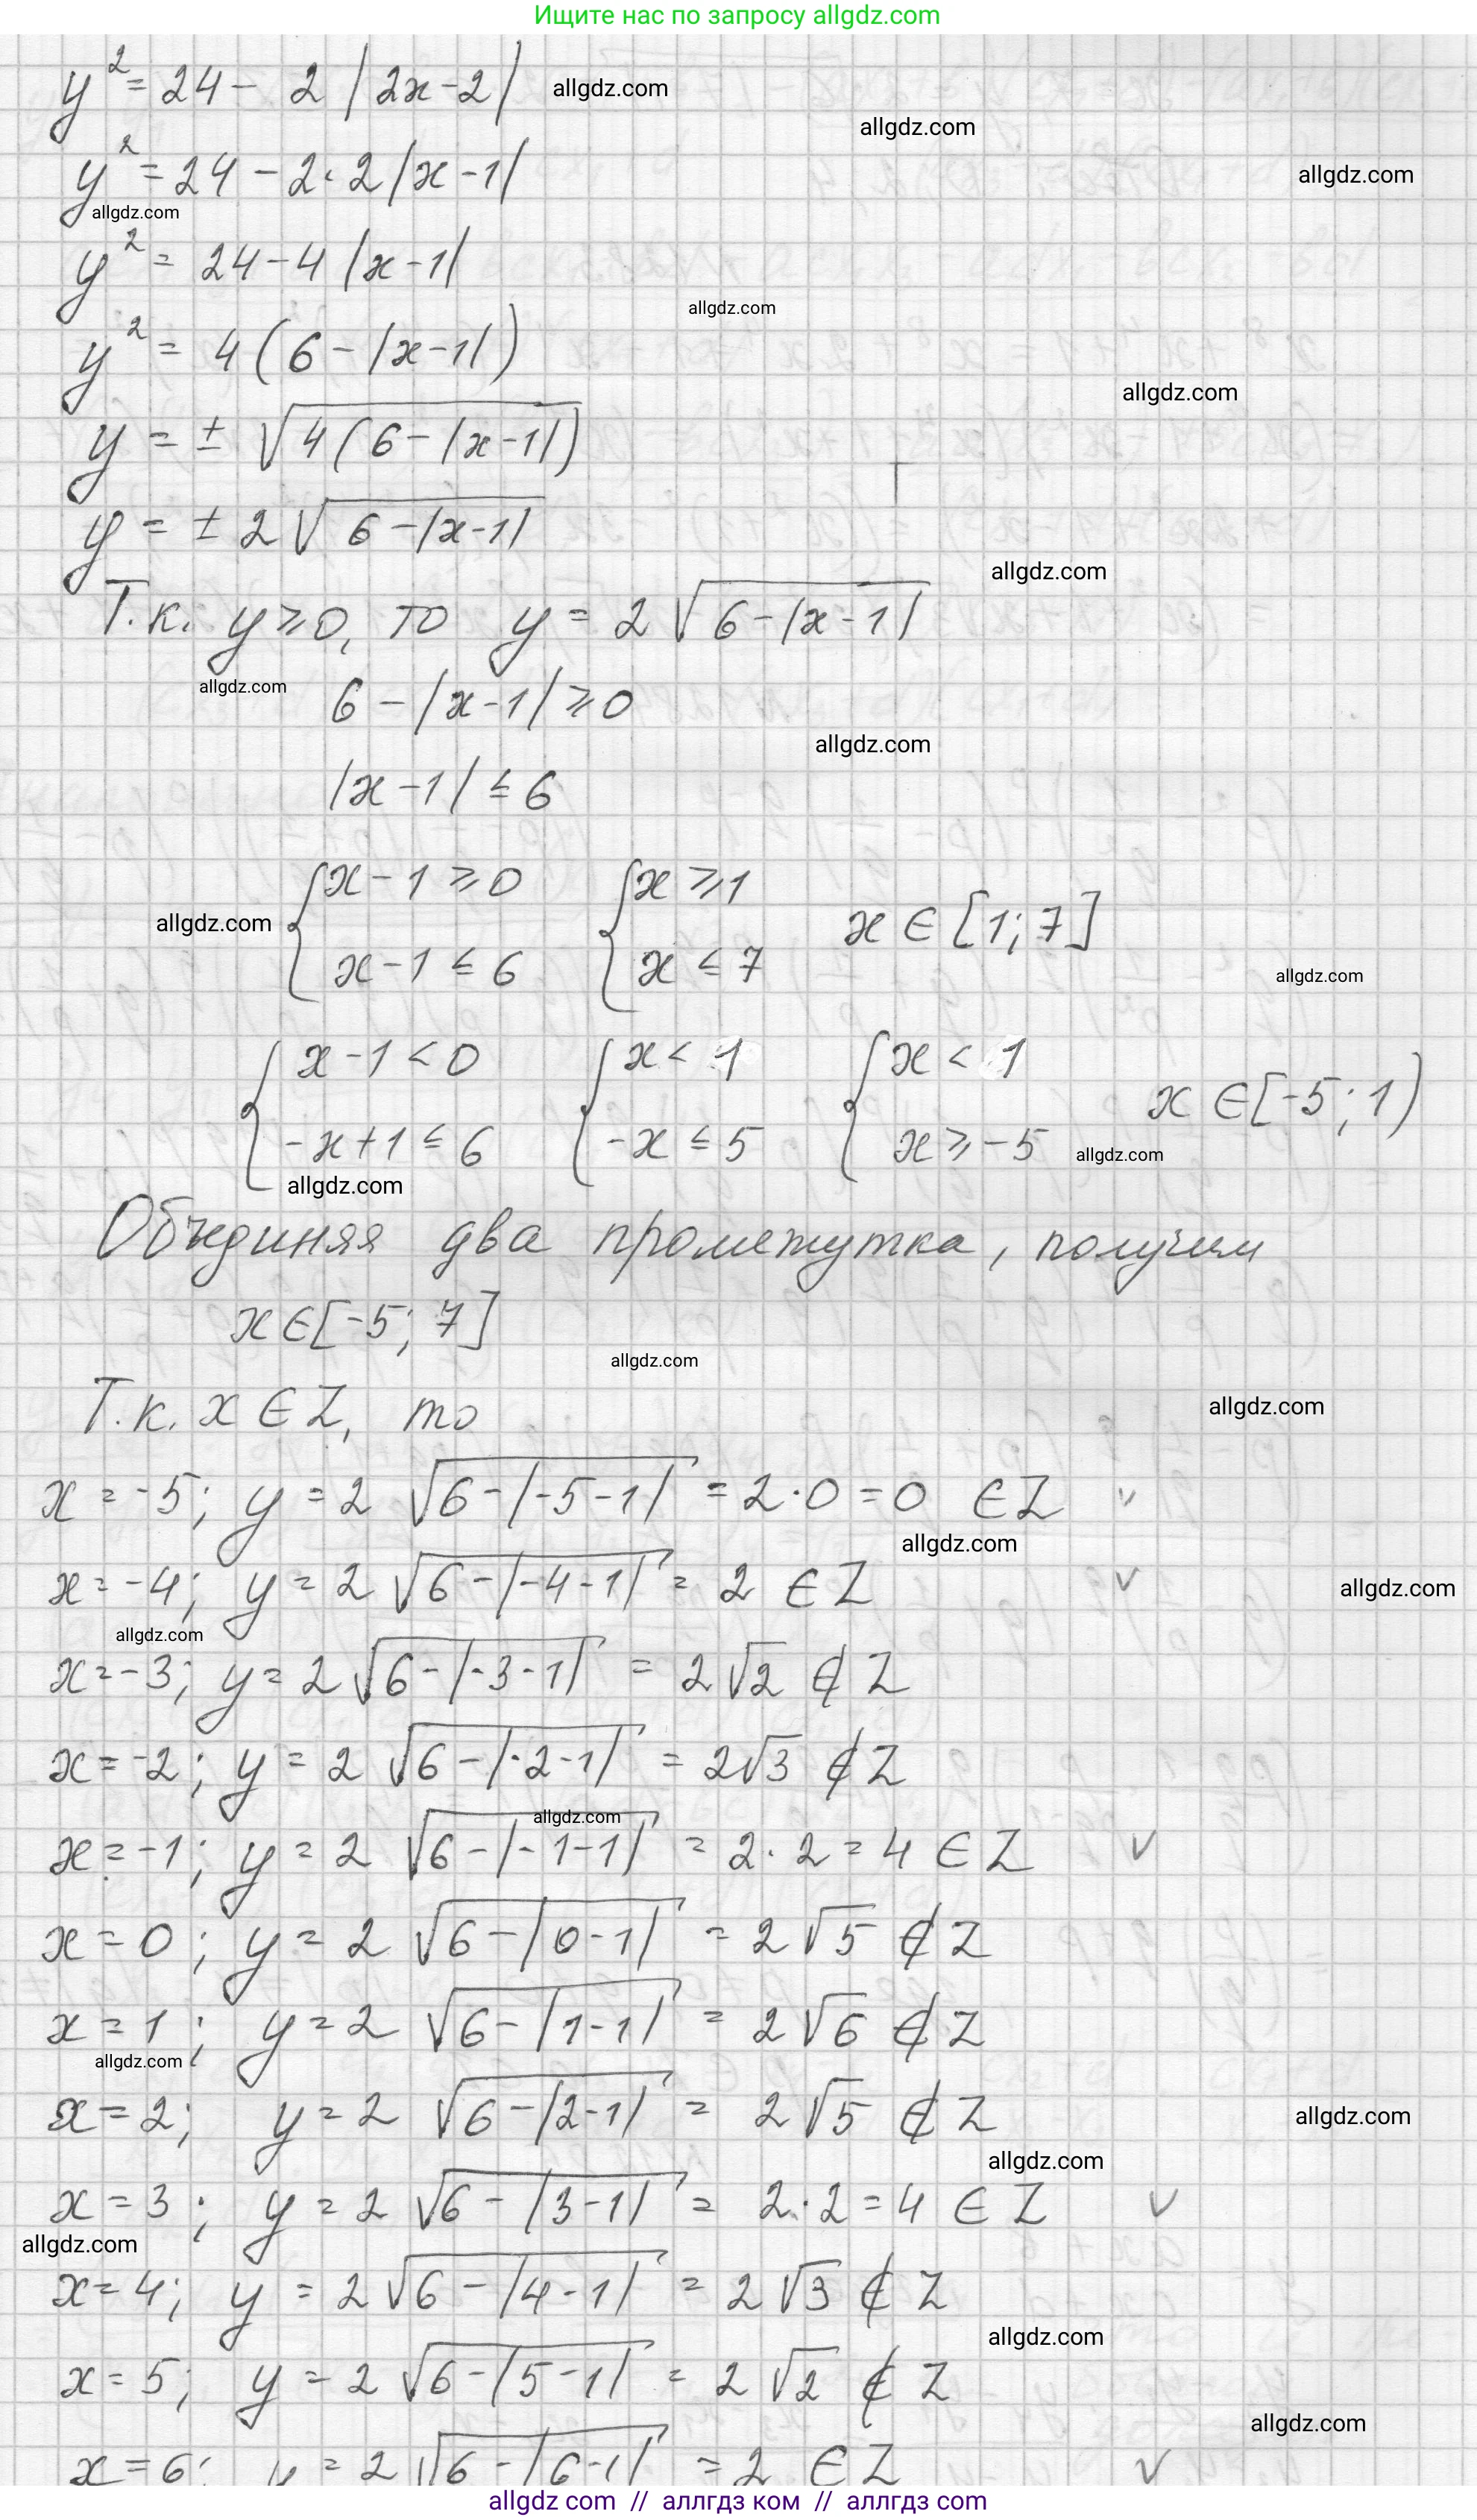 Ищите нас по запросу allgdz.com
y² = 24 - 2|2x-2| allgdz.com
allgdz.com
y² = 24 - 2·2|x-1| allgdz.com
allgdz.com
y² = 24-4|x-1|
allgdz.com
y² = 4(6-|x-1|)
allgdz.com
y = ± √4(6-|x-1|)
y = ± 2√6-|x-1|
allgdz.com
Т.к. y ⩾ 0, то y = 2√6-|x-1|
allgdz.com
6-|x-1| ⩾ 0
allgdz.com
|x-1| ≤ 6
{x-1 ⩾ 0 {x ⩾ 1
allgdz.com x ∈ [1; 7]
x-1 ≤ 6 x ≤ 7 allgdz.com
{x-1 < 0 {x < 1 {x < 1
x ∈ [-5; 1)
-x+1 ≤ 6 -x ≤ 5 x ⩾ -5 allgdz.com
allgdz.com
Объединяя два промежутка, получим
x ∈ [-5; 7]
allgdz.com
Т.к. x ∈ Z, то allgdz.com
x = -5; y = 2 √6-|-5-1| = 2·0 = 0 ∈ Z v
allgdz.com
x = -4; y = 2 √6-|-4-1| = 2 ∈ Z v allgdz.com
allgdz.com
x = -3; y = 2 √6-|-3-1| = 2√2 ∉ Z
x = -2; y = 2 √6-|-2-1| = 2√3 ∉ Z
allgdz.com
x = -1; y = 2 √6-|-1-1| = 2·2 = 4 ∈ Z v
x = 0; y = 2 √6-|0-1| = 2√5 ∉ Z
x = 1; y = 2 √6-|1-1| = 2√6 ∉ Z
allgdz.com
x = 2; y = 2 √6-|2-1| = 2√5 ∉ Z allgdz.com
allgdz.com
x = 3; y = 2 √6-|3-1| = 2·2 = 4 ∈ Z v
allgdz.com
x = 4; y = 2√6-|4-1| = 2√3 ∉ Z
allgdz.com
x = 5; y = 2 √6-|5-1| = 2√2 ∉ Z
allgdz.com
x = 6; y = 2 √6-|6-1| = 2 ∈ Z v
allgdz com // аллгдз ком // аллгдз com